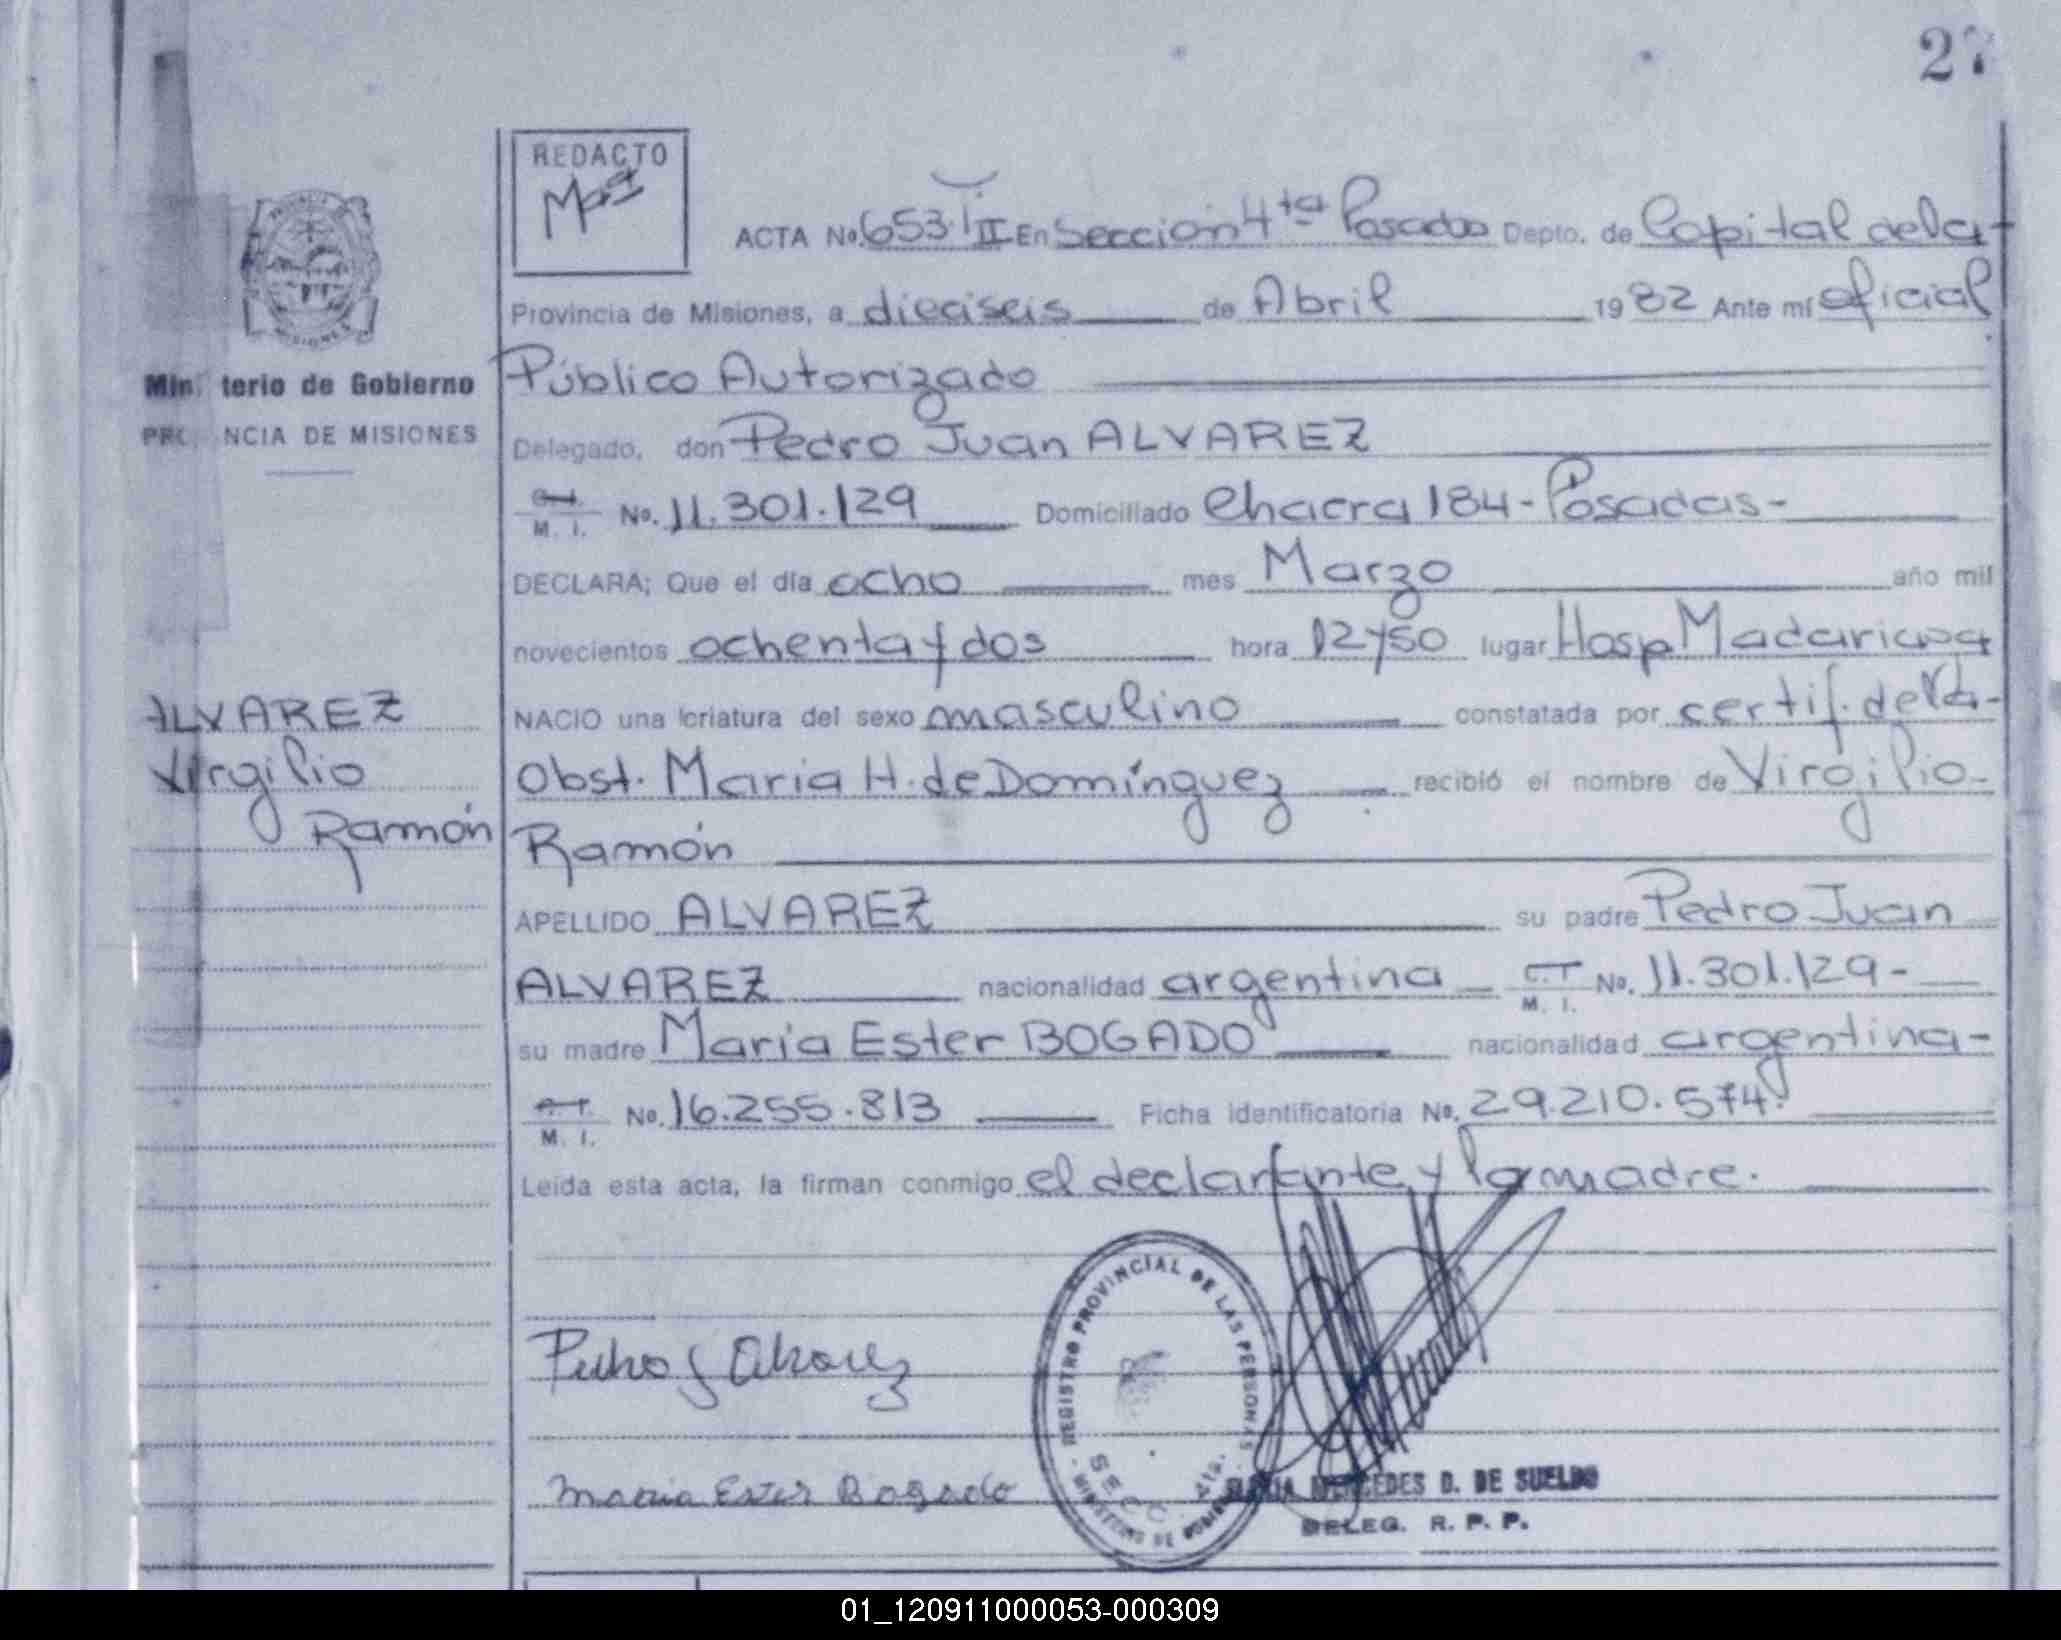 27
REDACTO
ACTA No. 653. T II En Sección 4ta Posadas Depto. de Capital de la
Provincia de Misiones, a dieciseis de Abril 1982 Ante mí oficial
Público Autorizado
Ministerio de Gobierno
PROVINCIA DE MISIONES
Delegado, don Pedro Juan ALVAREZ
M. I. No. 11.301.129 Domiciliado Chacra 184 - Posadas -
DECLARA; Que el día ocho mes Marzo año mil
novecientos ochenta y dos hora 12y50 lugar Hosp Madariaga
ALVAREZ
NACIO una criatura del sexo masculino constatada por certif. de la -
Virgilio
Obst. Maria H. de Domínguez recibió el nombre de Virgilio -
Ramón
Ramón
APELLIDO ALVAREZ su padre Pedro Juan
ALVAREZ nacionalidad argentina M. I. No. 11.301.129 -
su madre Maria Ester BOGADO nacionalidad argentina -
M. I. No. 16.255.813 Ficha identificatoria No. 29.210.574.
Leída esta acta, la firman conmigo el declarante y la madre.
REGISTRO PROVINCIAL DE LAS PERSONAS
SECC. 4ta.
MINISTERIO DE GOBIERNO
Pedro J Alvarez
Maria Ester Bogado
MERCEDES D. DE SUELDO
DELEG. R. P. P.
01_120911000053-000309